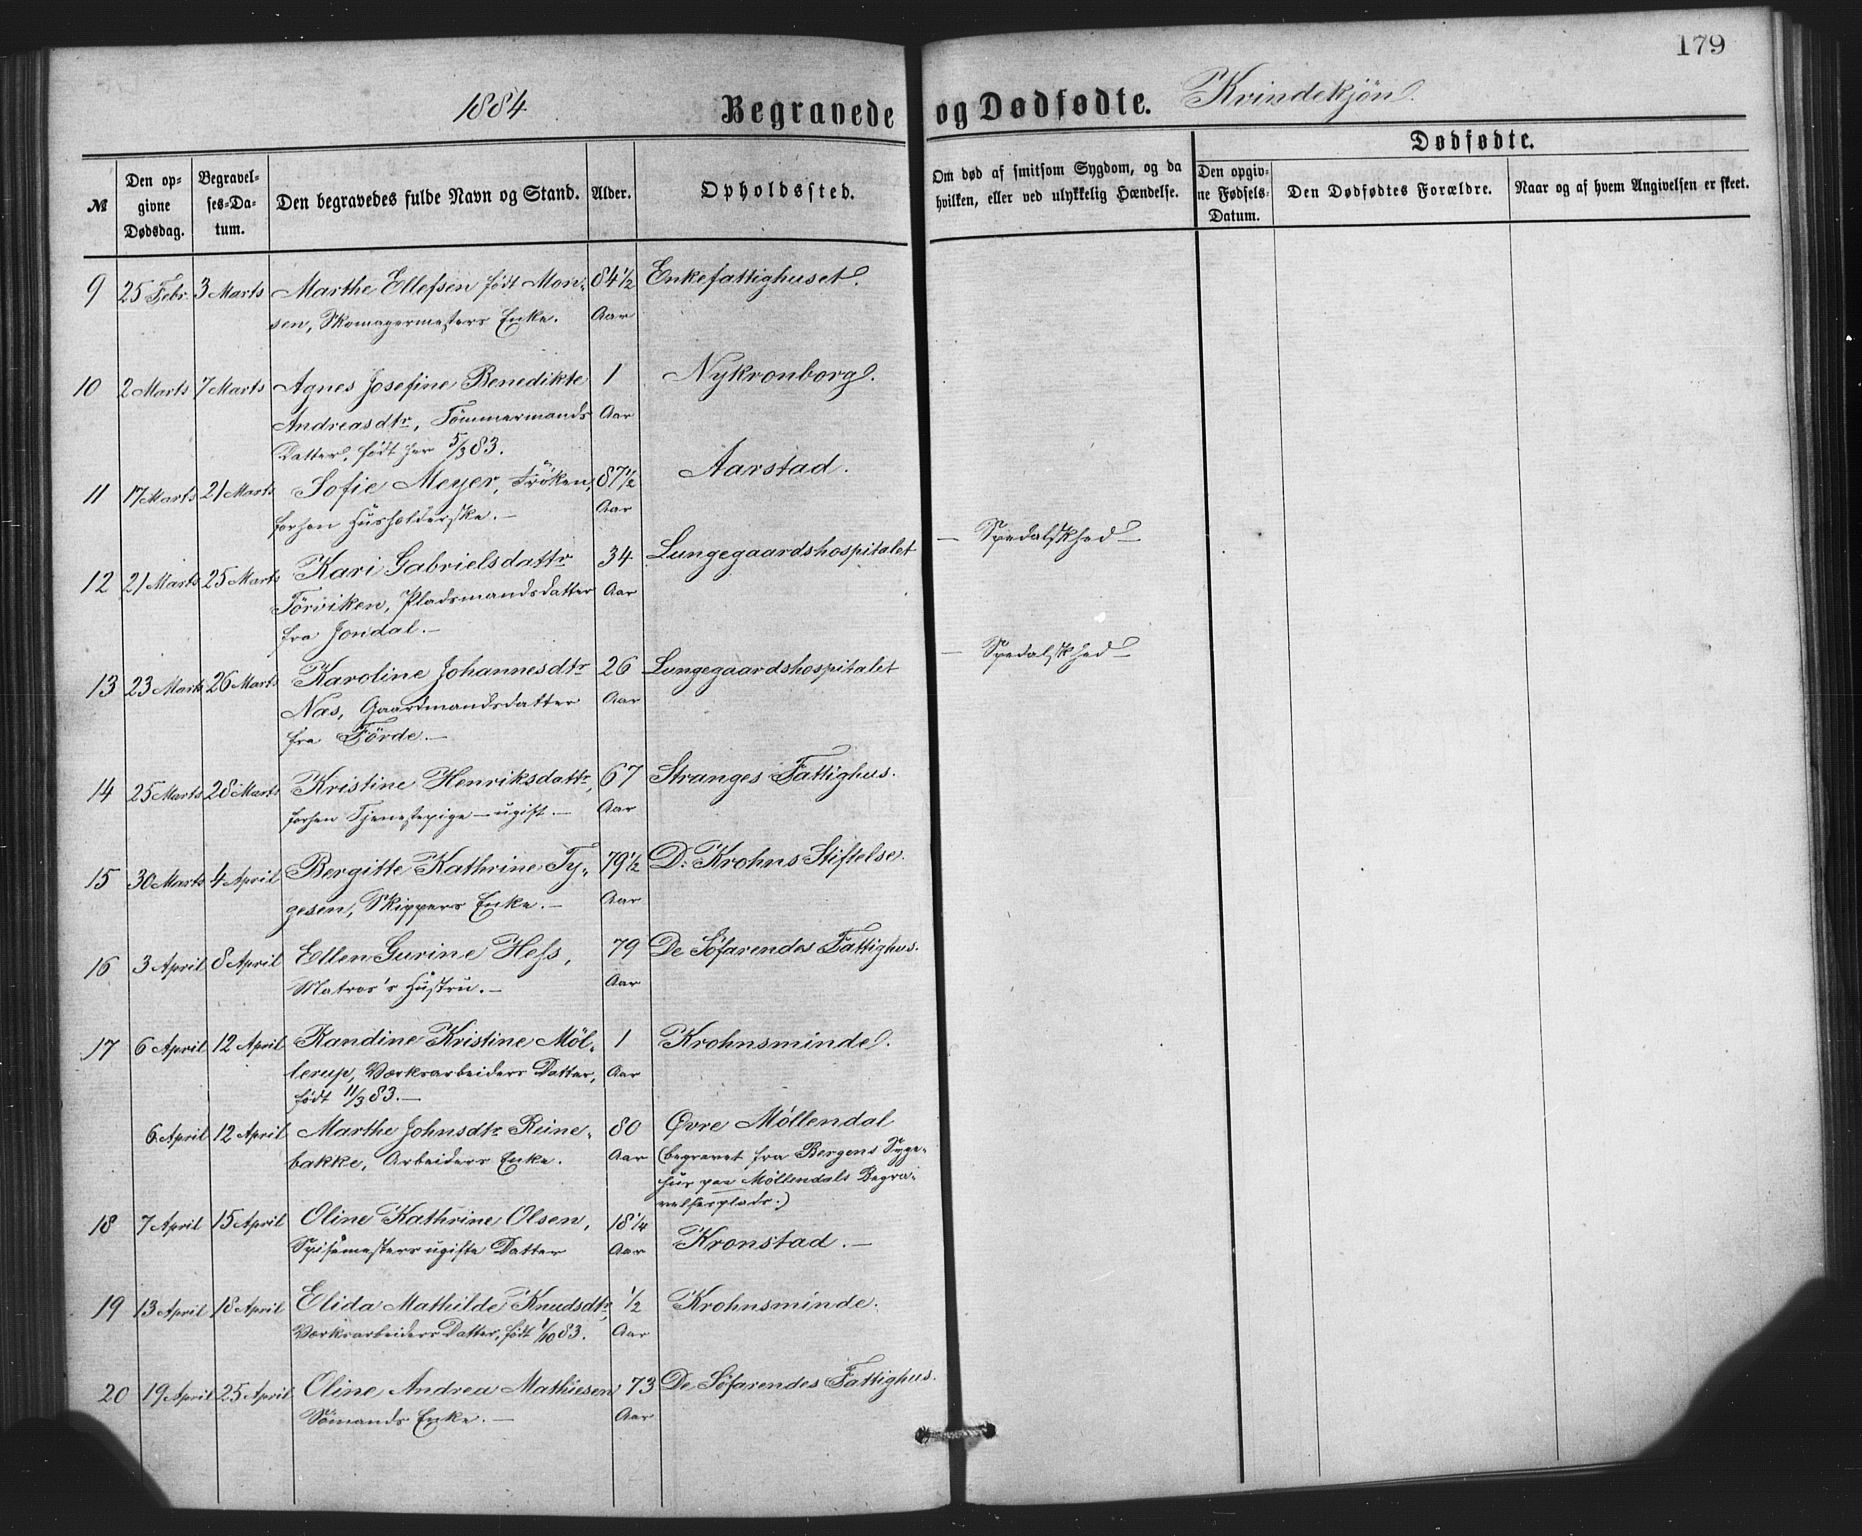 179
1884 Begravede og Dødfødte. Kvindekjön.
Dødfødte.
№
Den op-
givne
Dødsdag.
Begravel-
ses-Da-
tum.
Den begravedes fulde Navn og Stand.
Alder.
Opholdssted.
Om død af smitsom Sygdom, og da
hvilken, eller ved ulykkelig Hændelse.
Den opgiv-
ne Fødsels-
Datum.
Den Dødfødtes Forældre.
Naar og af hvem Angivelsen er skeet.
9 25 Febr. 3 Marts Marthe Ellefsen født Mon- 84½ Enkefattighuset.
sen, Skomagermesters Enke. Aar
10 2 Marts 7 Marts Agnes Josefine Benedikte 1 Nykronborg.
Andreasdtr, Tömmermands Aar
Datter, født her 5/3 83.
11 17 Marts 21 Marts Sofie Meyer, Fröken, 87½ Aarstad.
forhen Husholderske. — Aar
12 21 Marts 25 Marts Kari Gabrielsdattr 34 Lungegaardshospitalet — Spedalskhed —
Törviken, Pladsmandsdatter Aar
fra Jondal. —
13 23 Marts 26 Marts Karoline Johannesdtr 26 Lungegaardshospitalet — Spedalskhed —
Næs, Gaardmandsdatter Aar
fra Förde. —
14 25 Marts 28 Marts Kristine Henriksdattr, 67 Stranges Fattighus.
forhen Tjenestepige — ugift. — Aar
15 30 Marts 4 April Bergitte Kathrine Ty- 79½ D: Krohns Stiftelse.
gesen, Skippers Enke. — Aar
16 3 April 8 April Ellen Gurine Hess, 79 De Søfarendes Fattighus.
Matros's Hustru. — Aar
17 6 April 12 April Randine Kristine Møl- 1 Krohnsminde.
lerup, Værksarbeiders Datter, Aar
født 11/3 83. —
6 April 12 April Marthe Johnsdtr Reine- 80 Øvre Møllendal
bakke, Arbeiders Enke. Aar (begravet fra Bergens Syge-
hus paa Møllendals Begra-
velsesplads.)
18 7 April 15 April Oline Kathrine Olsen, 18¼
Spisemesters ugifte Datter Aar Kronstad. —
19 13 April 18 April Elida Mathilde Knudsdtr, ½ Krohnsminde.
Værksarbeiders Datter, født 1/10 83. Aar
20 19 April 25 April Oline Andrea Mathiesen 73 De Søfarendes Fattighus.
Sömands Enke. — Aar